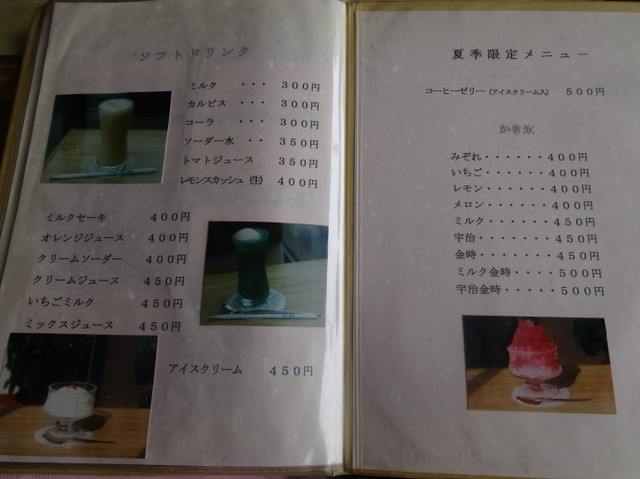 ソフトドリンク
ミルク ・・・ 300円
カルピス ・・・ 300円
コーラ ・・・ 300円
ソーダー水 ・・ 350円
トマトジュース 350円
レモンスカッシュ(生) 400円
ミルクセーキ 400円
オレンジジュース 400円
クリームソーダー 400円
クリームジュース 450円
いちごミルク 450円
ミックスジュース 450円
アイスクリーム 450円
夏季限定メニュー
コーヒーゼリー(アイスクリーム入) 500円
かき氷
みぞれ・・・・・・・400円
いちご・・・・・・・400円
レモン・・・・・・・400円
メロン・・・・・・・400円
ミルク・・・・・・・450円
宇治・・・・・・・・450円
金時・・・・・・・・450円
ミルク金時・・・・・500円
宇治金時・・・・・・500円